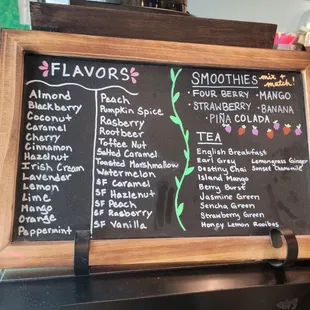 FLAVORS
Almond
Blackberry
Coconut
Caramel
Cherry
Cinnamon
Hazelnut
Irish Cream
Lavender
Lemon
Lime
Mango
Orange
Peppermint
Peach
Pumpkin Spice
Rasberry
Rootbeer
Toffee Nut
Salted Caramel
Toasted Marshmallow
Watermelon
SF Caramel
SF Hazelnut
SF Peach
SF Rasberry
SF Vanilla
SMOOTHIES mix + match!
· FOUR BERRY · MANGO
· STRAWBERRY · BANANA
· PIÑA COLADA
TEA
English Breakfast
Earl Grey Lemongrass Ginger
Destiny Chai Sunset Chamomile
Island Mango
Berry Burst
Jasmine Green
Sencha Green
Strawberry Green
Honey Lemon Rooibos